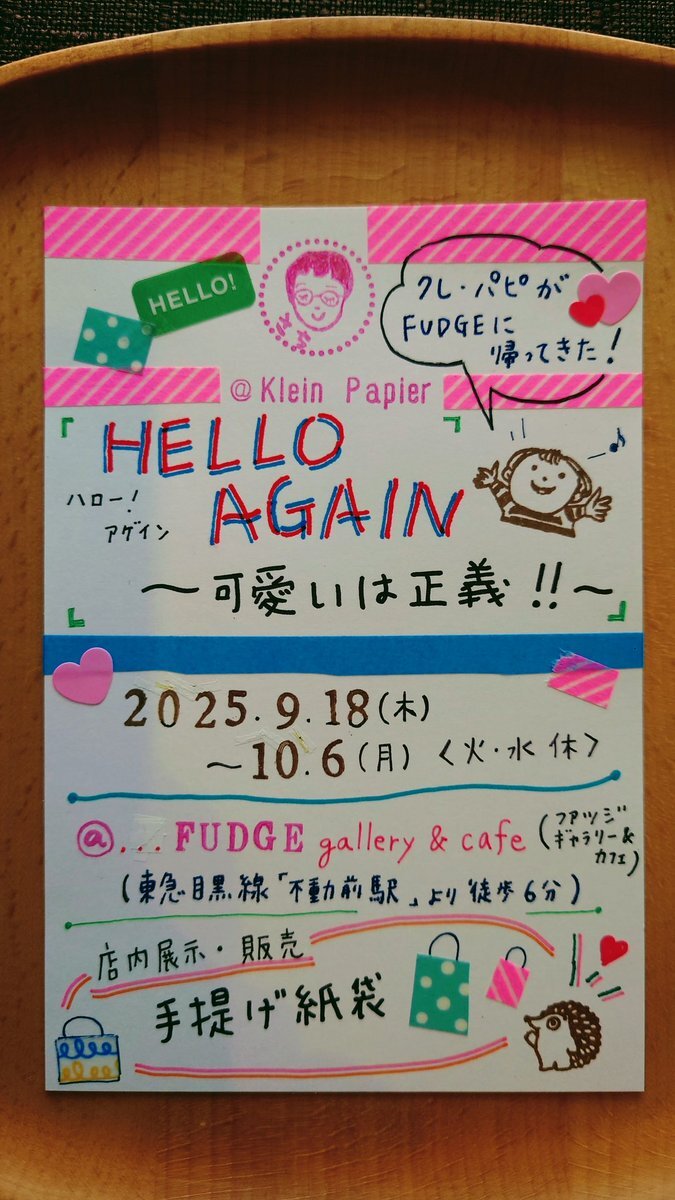 HELLO!
さち
クレ・パピが
FUDGEに
帰ってきた!
@Klein Papier
『HELLO』
ハロー!
アゲイン
AGAIN
~可愛いは正義!!~
2025.9.18(木)
~10.6(月) <火・水 休>
@...FUDGE gallery & cafe
(ファッジ
ギャラリー&
カフェ)
(東急目黒線「不動前駅」より徒歩6分)
店内展示・販売
手提げ紙袋